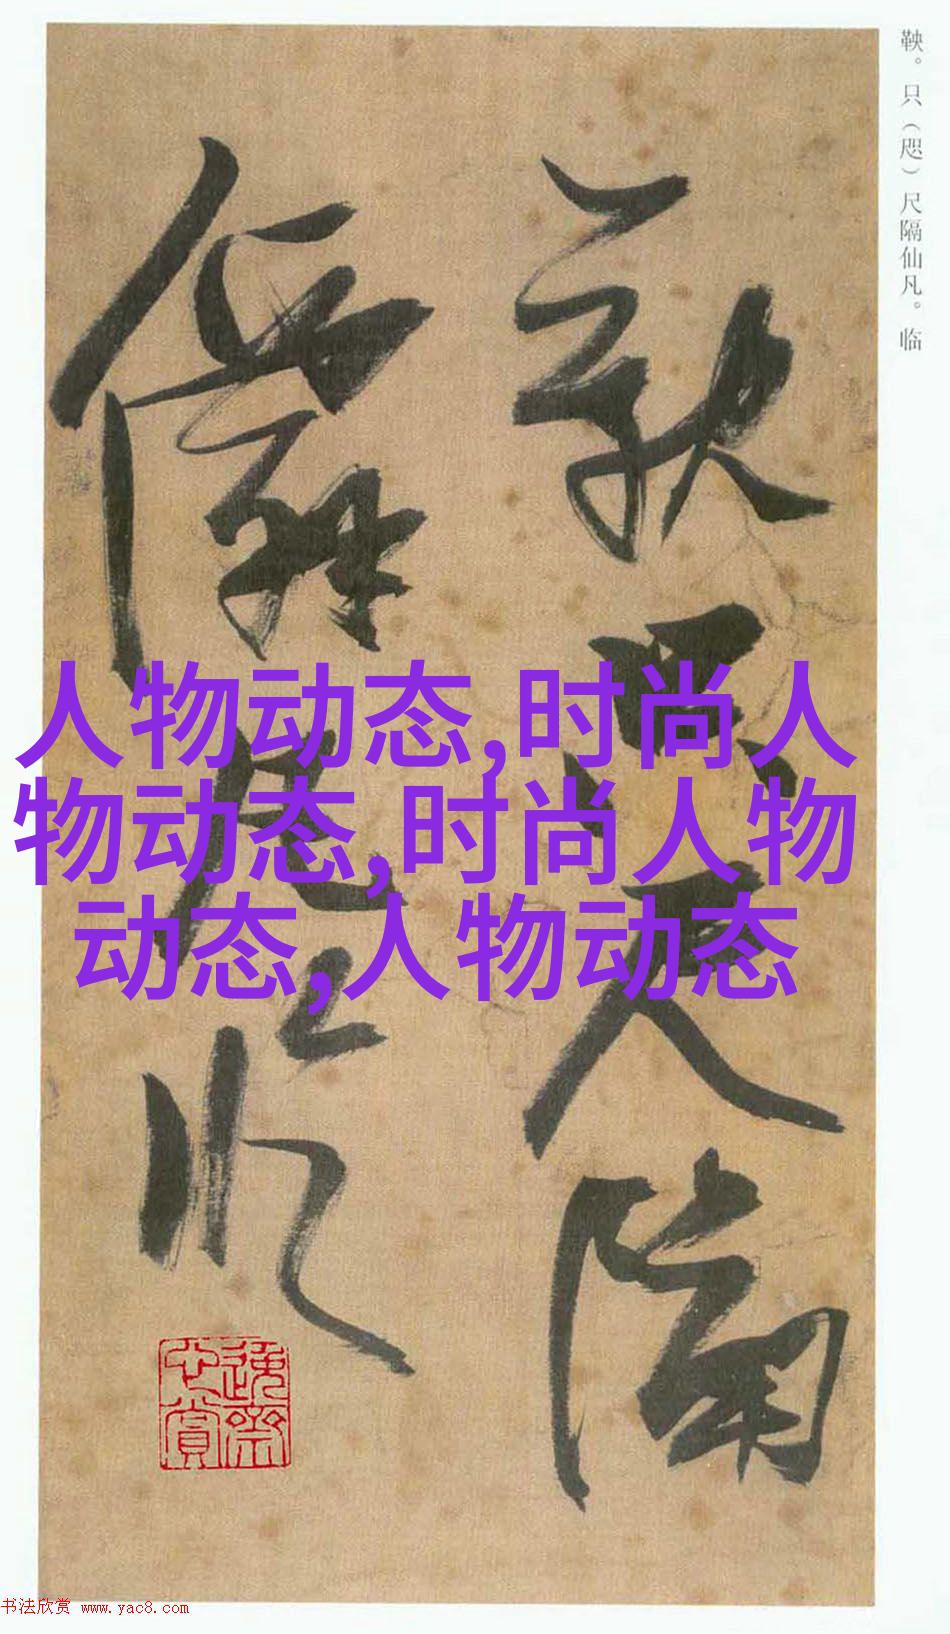 鞅。只（咫）尺隔仙凡。临
鞅只尺隔
僊凡临
人物动态,时尚人
物动态,时尚人物
动态,人物动态
书法欣赏 www.yac8.com